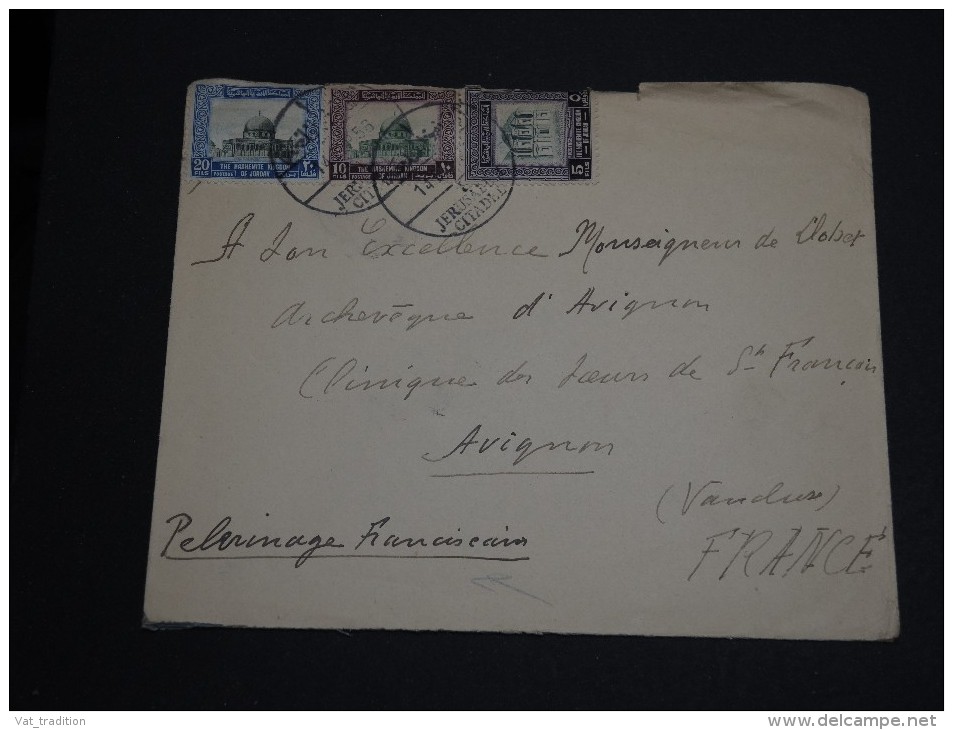 20 FILS
POSTAGE
THE HASHEMITE KINGDOM
OF JORDAN
10 FILS
POSTAGE
THE HASHEMITE KINGDOM
OF JORDAN
5 FILS
56
JERUSALEM
CITADEL
A Son Excellence Monseigneur de Llobet
Archevêque d'Avignon
Clinique des Sœurs de St François
Avignon
(Vaucluse)
FRANCE
Pelerinage Franciscain
Vat_tradition
www.delcampe.net